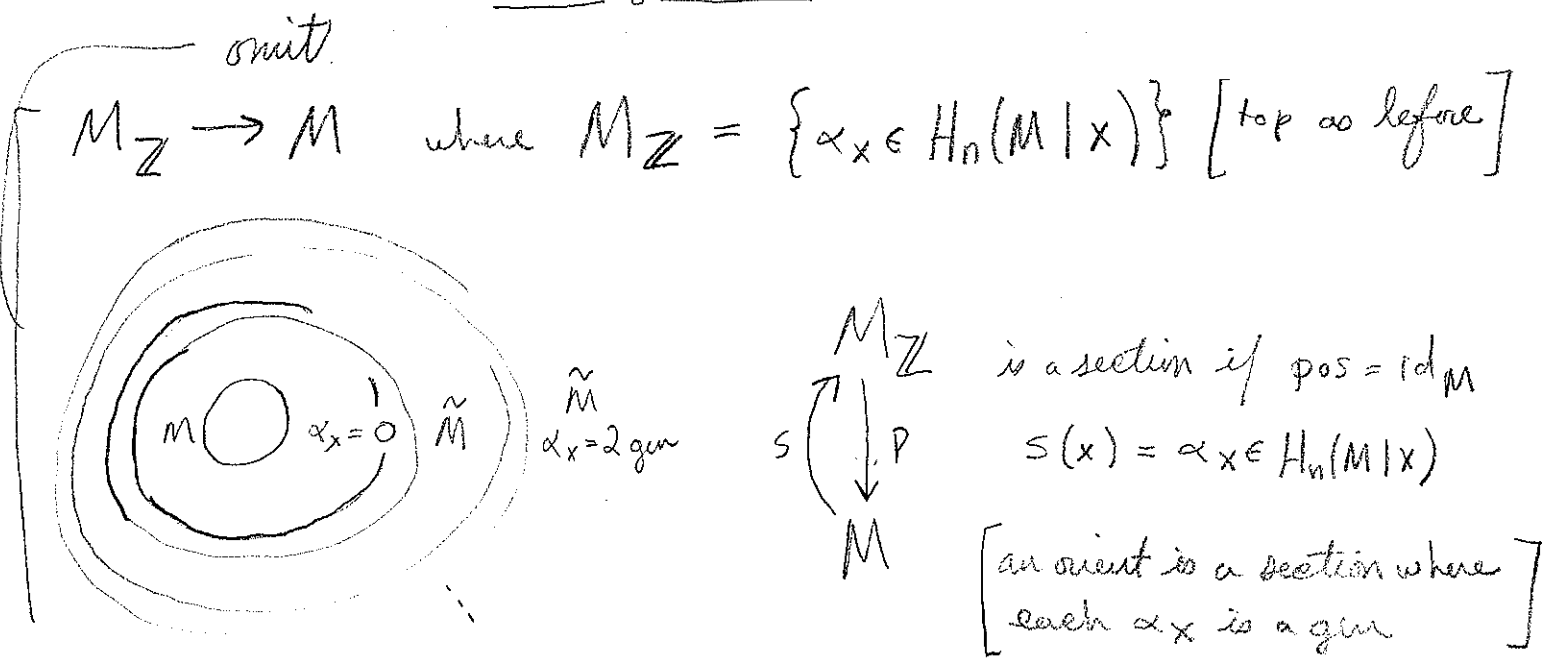 omit.
M_ℤ → M where M_ℤ = {α_x ∈ H_n(M | x)} [top as before]
M α_x = 0 M̃ M̃
α_x = 2 gen
M_ℤ is a section if pos = id_M
s p s(x) = α_x ∈ H_n(M | x)
M
[an orient is a section where
each α_x is a gen]